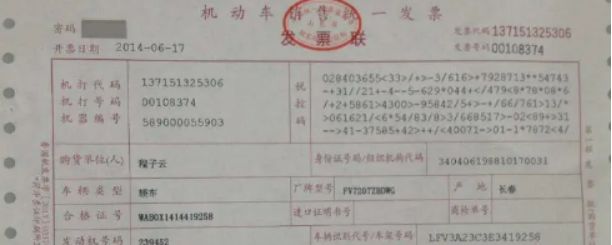 机动车销售统一发票
发票联
密码
开票日期 2014-06-17
发票代码 137151325306
发票号码 00108374
机打代码 137151325306
机打号码 00108374
机器编号 589000055903
税控码
028403655<33>/+>-3/616>+7928713**54743
-+31//21+-4--5-629*044+</479<8*78*08*6
/+2+5861>4300>-95842/5+>-+/66/761>13/*
>061621/<6*54/83/8>3/668517>-02<89+>31
-->41-37585+42>++/<40071->01-1*7872<4/
购货单位(人) 程子云 身份证号码/组织机构代码 340406198810170031
车辆类型 轿车 厂牌型号 FV7207ZBDWG 产地 长春
合格证号 WAB0X1414419258 进口证明书号 商检单号
发动机号码 239452 车辆识别代号/车架号码 LFV3A23C3E3419258